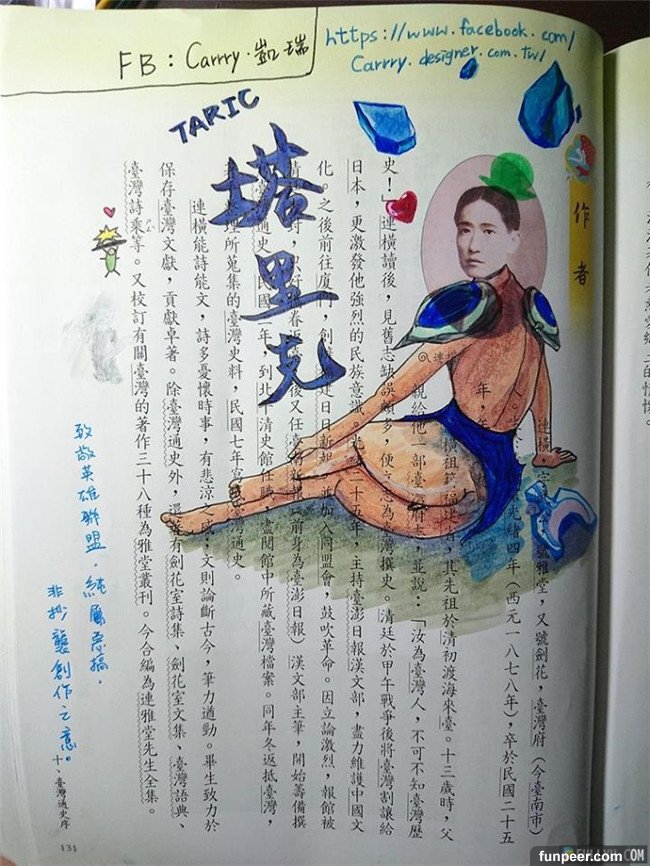 FB: Carrry.凱瑞
https://www.facebook.com/
Carrry.designer.com.tw/
TARIC
塔里克
作者
連橫
連橫,字 號雅堂,又號劍花,臺灣府(今臺南市)
人。 光緒四年(西元一八七八年),卒於民國二十五
年,年
橫祖籍福建 ,其先祖於清初渡海來臺。十三歲時,父
親給他一部臺灣府志,並說:「汝為臺灣人,不可不知臺灣歷
史!」連橫讀後,見舊志缺誤頗多,便立志為臺灣撰史。清廷於甲午戰爭後將臺灣割讓給
日本,更激發他強烈的民族意識。光緒二十五年,主持臺澎日報漢文部,盡力維護中國文
化。之後前往廈門,創 建日日新報,並加入同盟會,鼓吹革命。因立論激烈,報館被
清 時,只好 春返 後又任 (前身為臺澎日報)漢文部主筆,開始籌備撰
通史,民國 年,到北平清史館任職,盡閱館中所藏臺灣檔案。同年冬返抵臺灣,
整理所蒐集的臺灣史料,民國七年 臺灣通史。
連橫能詩能文,詩多憂懷時事,有悲涼之感;文則論斷古今,筆力遒勁。畢生致力於
保存臺灣文獻,貢獻卓著。除臺灣通史外,還著有劍花室詩集、劍花室文集、臺灣語典、
臺灣詩乘等。又校訂有關臺灣的著作三十八種為雅堂叢刊。今合編為連雅堂先生全集。
致敬英雄聯盟,純屬惡搞,
非抄襲創作之意。
十、臺灣通史序
131
funpeer.com